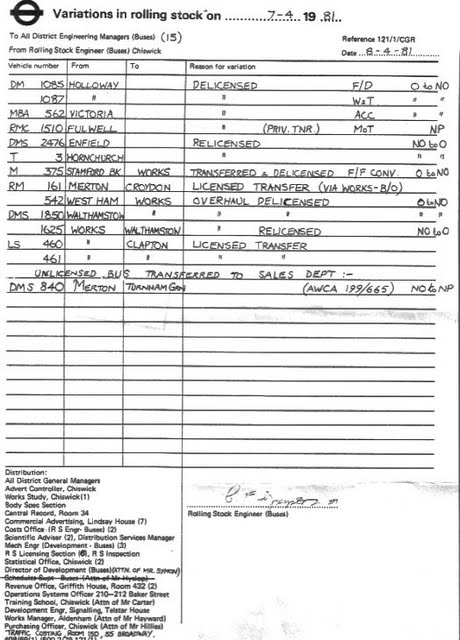 Variations in rolling stock on 7-4 1981
To All District Engineering Managers (Buses) (15)
Reference 121/1/CGR
From Rolling Stock Engineer (Buses) Chiswick
Date 8-4-81
Vehicle number From To Reason for variation
DM 1085 HOLLOWAY DELICENSED F/D O to NO
1087 " " W&T " "
MBA 562 VICTORIA " ACC " "
RMC 1510 FULWELL " (PRIV. TNR.) MoT NP
DMS 2476 ENFIELD RELICENSED NO to O
T 3 HORNCHURCH " " "
M 375 STAMFORD BK. WORKS TRANSFERRED & DELICENSED F/F CONV. O to NO
RM 161 MERTON CROYDON LICENSED TRANSFER (VIA WORKS-B/O)
542 WEST HAM WORKS OVERHAUL DELICENSED O to NO
DMS 1850 WALTHAMSTOW " " " " "
1625 WORKS WALTHAMSTOW " RELICENSED NO to O
LS 460 " CLAPTON LICENSED TRANSFER
461 " " " "
UNLICENSED BUS TRANSFERRED TO SALES DEPT :-
DMS 840 MERTON TURNHAM GRN (AWCA 199/665) NO to NP
Distribution:
All District General Managers
Advert Controller, Chiswick
Works Study, Chiswick (1)
Body Spec Section
Central Record, Room 34
Commercial Advertising, Lindsay House (7)
Costs Office (R S Engr- Buses) (2)
Scientific Adviser (2), Distribution Services Manager
Mech Engr (Development - Buses) (3)
R S Licensing Section (6), R S Inspection
Statistical Office, Chiswick (2)
Director of Development (Buses) (ATTN. OF MR. SYMON)
Schedules Supt - Buses (Attn of Mr Hyslop)
Revenue Office, Griffith House, Room 432 (2)
Operations Systems Officer 210-212 Baker Street
Training School, Chiswick (Attn of Mr Carter)
Development Engr, Signalling, Telstar House
Works Manager, Aldenham (Attn of Mr Hayward)
Purchasing Officer, Chiswick (Attn of Mr Hillier)
TRAFFIC COSTING, ROOM 150, 55 BROADWAY.
Rolling Stock Engineer (Buses)